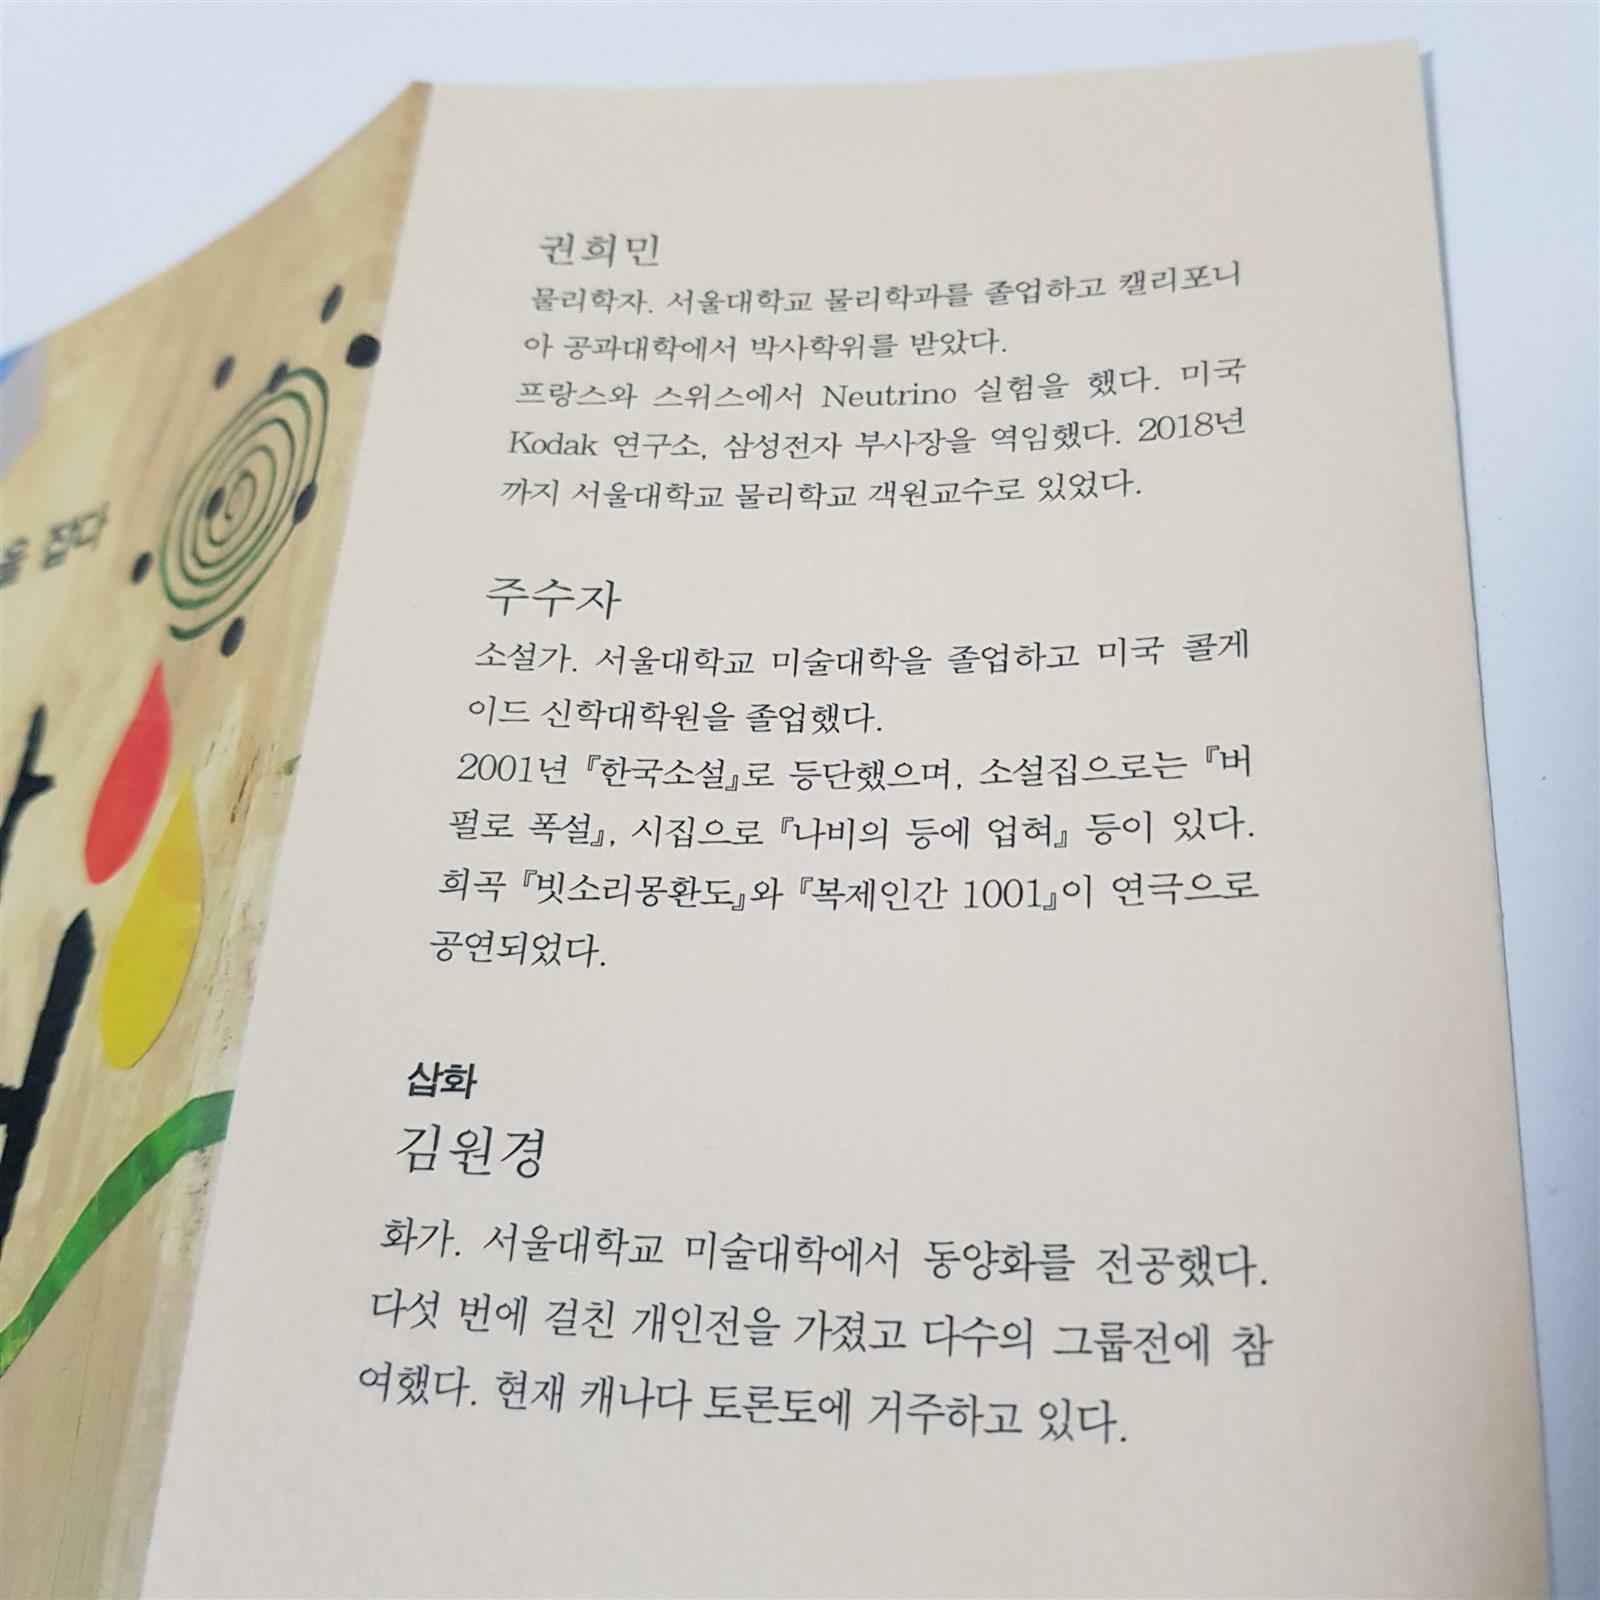 을 잡다
권희민
물리학자. 서울대학교 물리학과를 졸업하고 캘리포니
아 공과대학에서 박사학위를 받았다.
프랑스와 스위스에서 Neutrino 실험을 했다. 미국
Kodak 연구소, 삼성전자 부사장을 역임했다. 2018년
까지 서울대학교 물리학교 객원교수로 있었다.
주수자
소설가. 서울대학교 미술대학을 졸업하고 미국 콜게
이드 신학대학원을 졸업했다.
2001년 『한국소설』로 등단했으며, 소설집으로는 『버
펄로 폭설』, 시집으로 『나비의 등에 업혀』 등이 있다.
희곡 『빗소리몽환도』와 『복제인간 1001』이 연극으로
공연되었다.
삽화
김원경
화가. 서울대학교 미술대학에서 동양화를 전공했다.
다섯 번에 걸친 개인전을 가졌고 다수의 그룹전에 참
여했다. 현재 캐나다 토론토에 거주하고 있다.